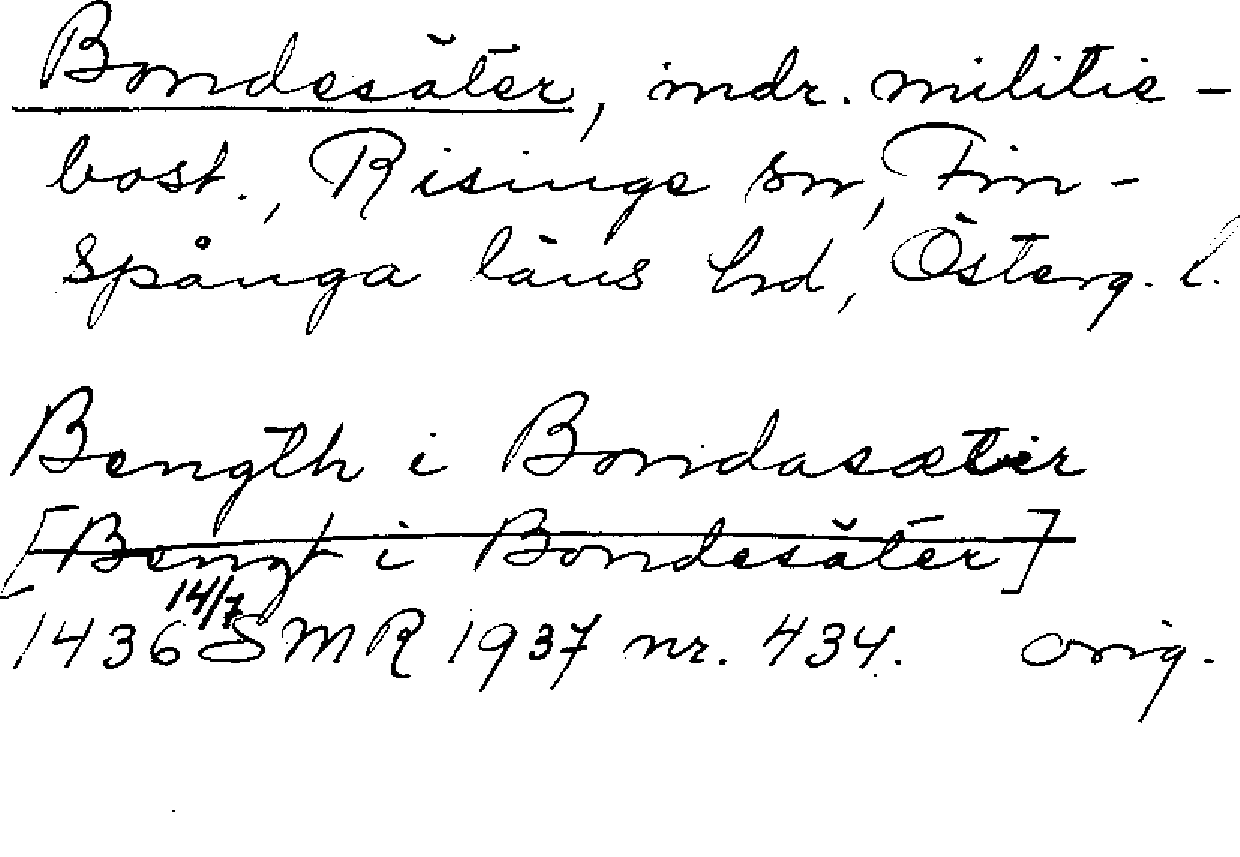 Bondesäter, indr. militie-
bost., Risinge sn, Fin-
spånga läns hd, Österg. l.
Bength i Bondasætir
[Bengt i Bondesäter]
1436 14/7 SMR 1937 nr. 434. orig.